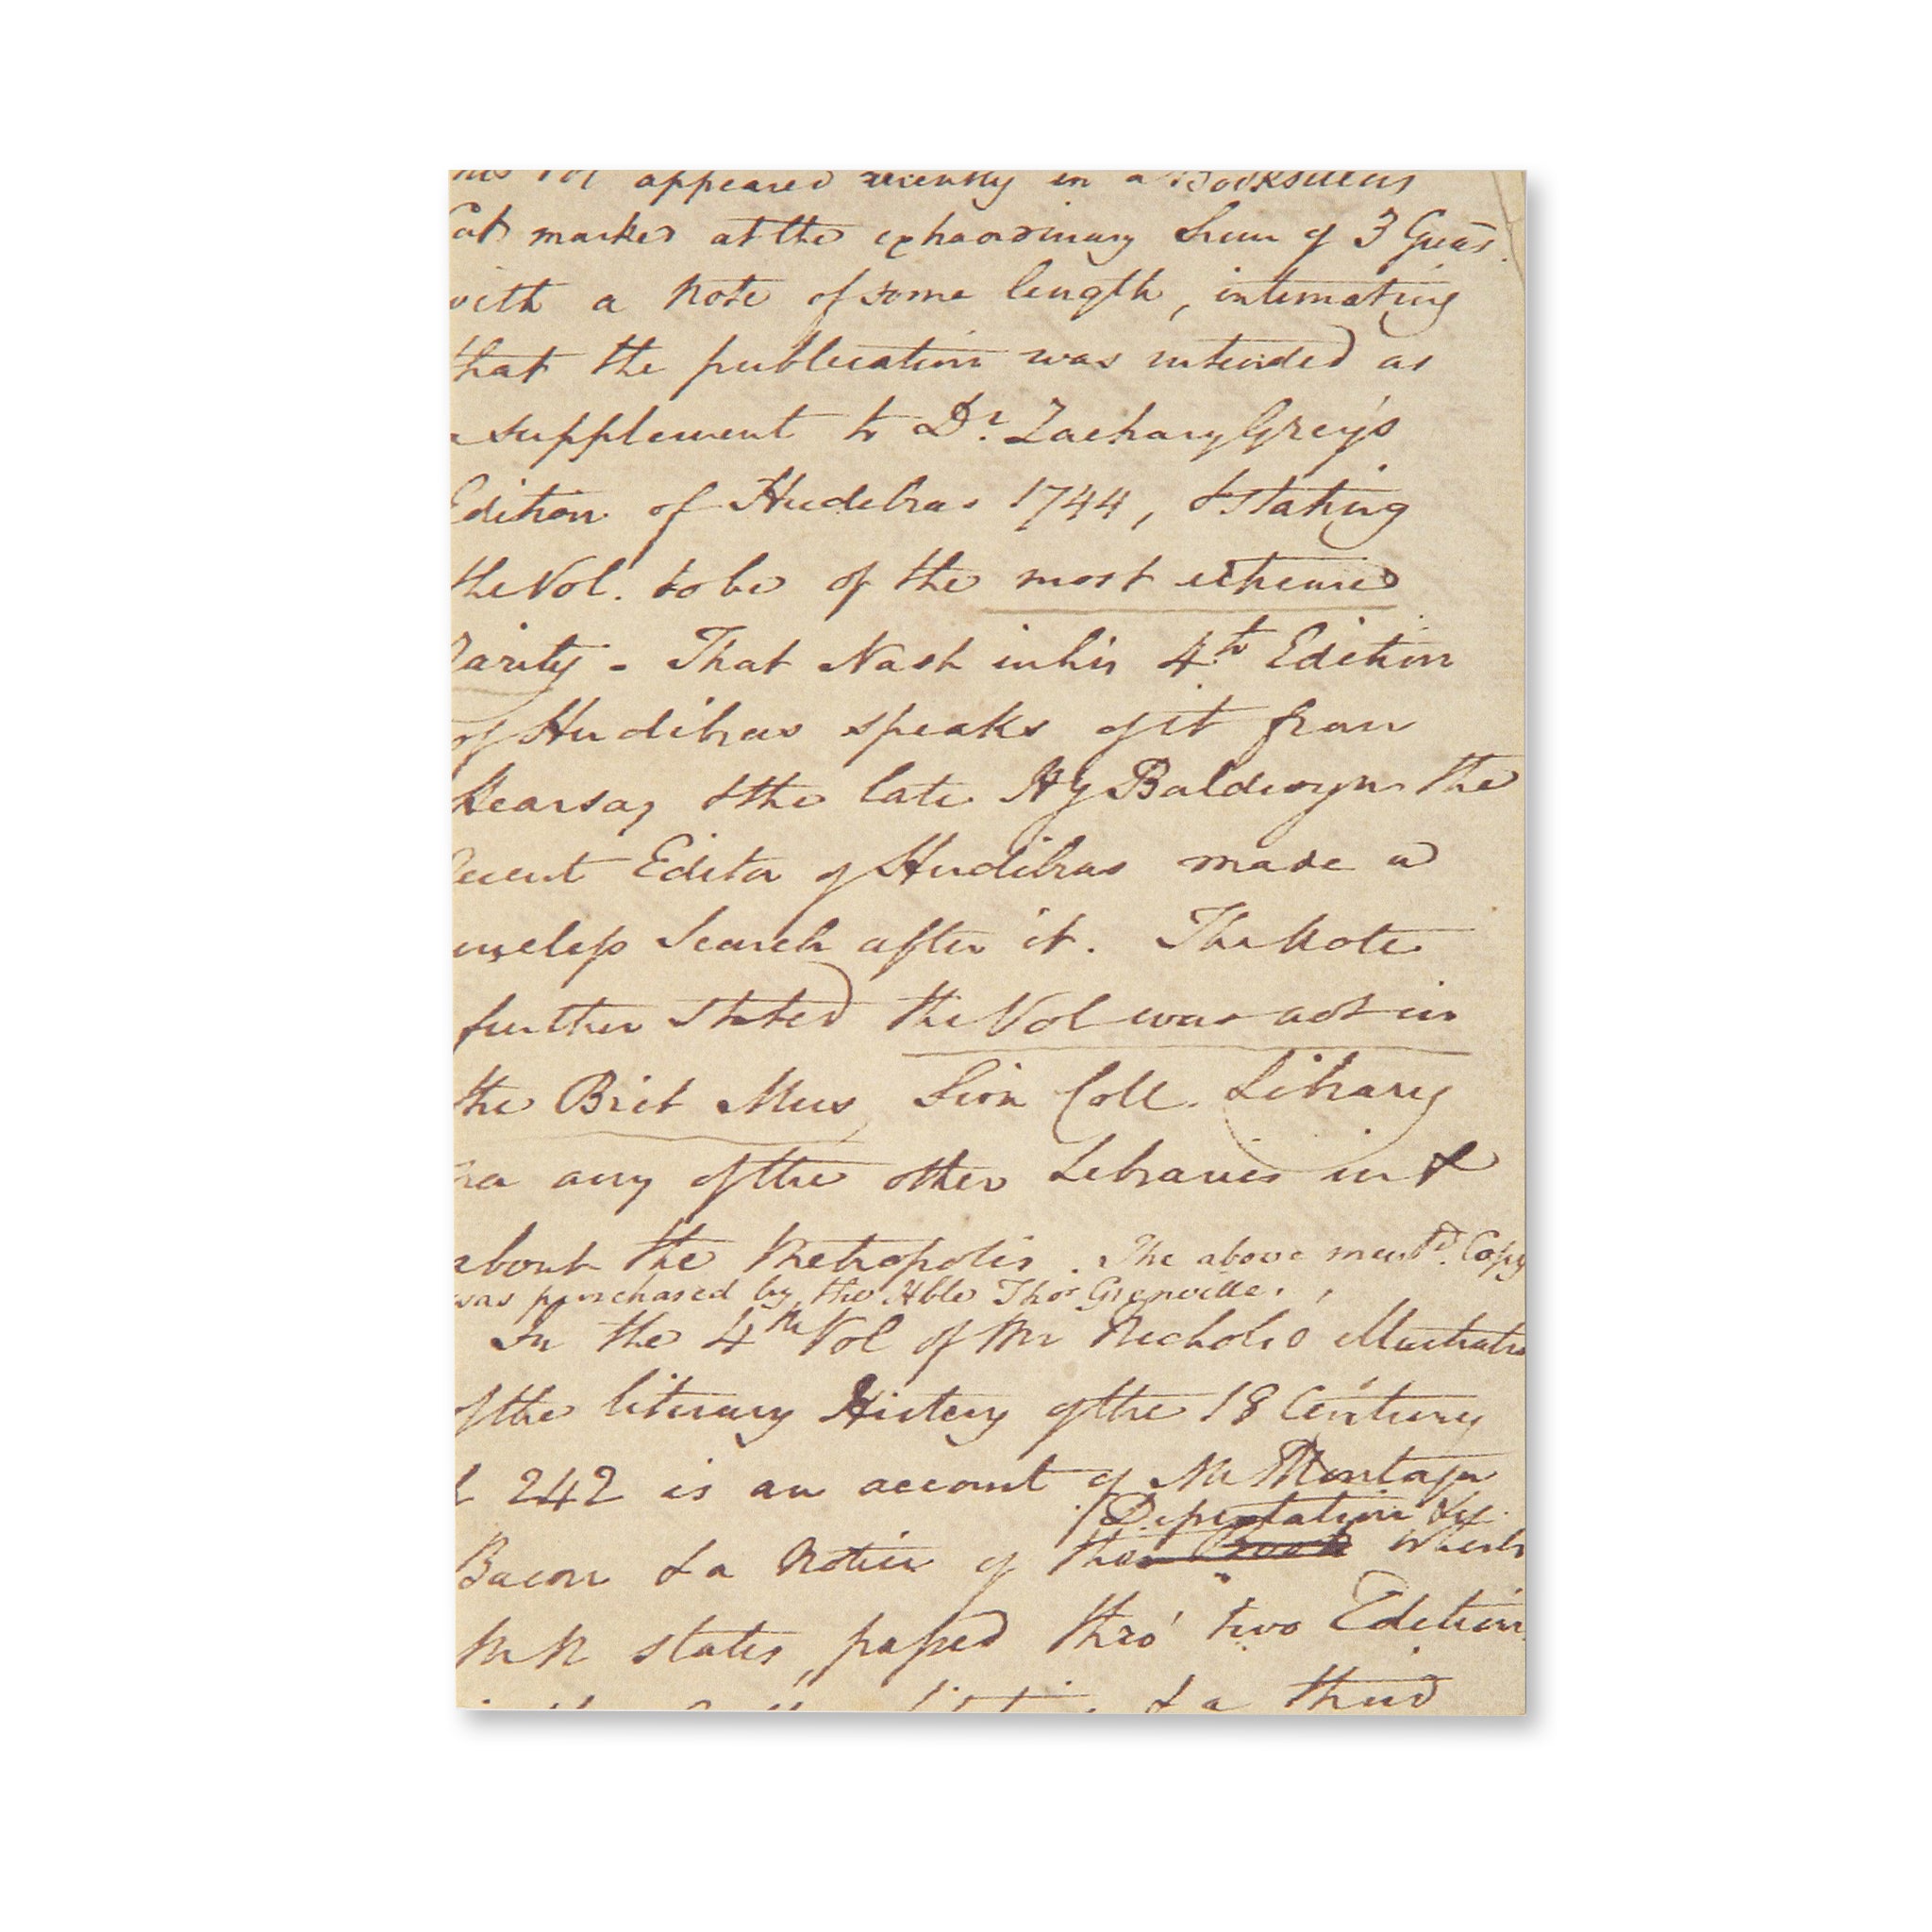 his Vol appeared recently in a Booksellers
Cat marked at the extraordinary Sum of 3 Gueas.
with a Note of some length, intimating
that the publication was intended as
a supplement to Dr. Zachary Grey's
Edition of Hudibras 1744, & stating
the Vol. to be of the most extreme
rarity - That Nash in his 4th Edition
of Hudibras speaks of it from
hearsay & the late Hy Baldwyn the
recent Editor of Hudibras made a
useless Search after it. The Note
further stated the Vol was not in
the Brit Mus Sion Coll. Library
nor any of the other Libraries in &
about the Metropolis. The above mentd. Copy
was purchased by the Hble Thos Grenville.
In the 4th Vol of Mr Nichols's illustratio
of the literary History of the 18 Century
242 is an account of Mr Montagu
Dissertation &c
Bacon & a Notice of which
Mr N states, passed thro' two Edition
& a third